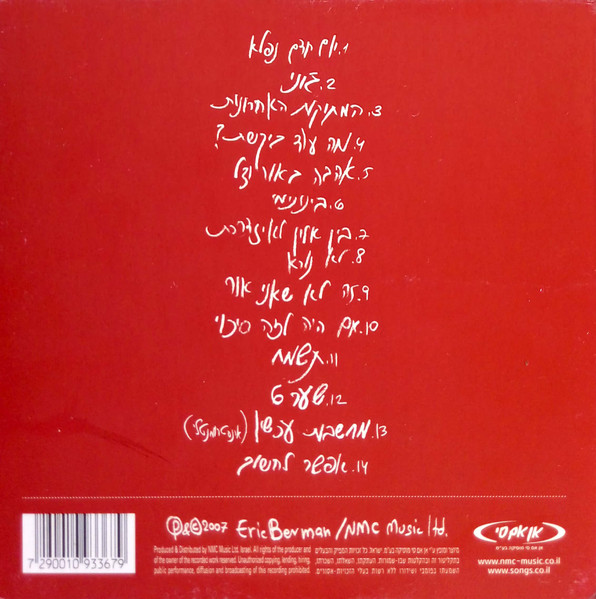 1. יום חדש נפלא
2. גוני
3. המתיקות האחרונות
4. מה עוד ביקשת?
5. אהבה באור וצל
6. בינונימי
7. בין אלין לאיזדרחת
8. לא נורא
9. זה לא שאני אור
10. אם היה לזה סיכוי
11. תשמח
12. שער 6
13. מחשבות עכשיו (אינסטרומנטלי)
14. אפשר לחשוב
7 290010 933679
℗&©2007 Eric Berman/NMC Music ltd.
Produced & Distributed by NMC Music Ltd. Israel. All rights of the producer and
of the owner of the recorded work reserved. Unauthorized copying, lending, hiring,
public performance, diffusion and broadcasting of this recording prohibited.
מיוצר ומופץ ע"י אן אם סי מוסיקה בע"מ. ישראל. כל זכויות המפיק והבעלים
בתקליטור זה ובהקלטות שבו-שמורות. העתקתו, השאלתו, השכרתו,
השמעתו בפומבי ושידורו ללא רשות בעלי הזכויות-אסורים.
אן אם סי
אן אם סי מוסיקה בע"מ
www.nmc-music.co.il
www.songs.co.il